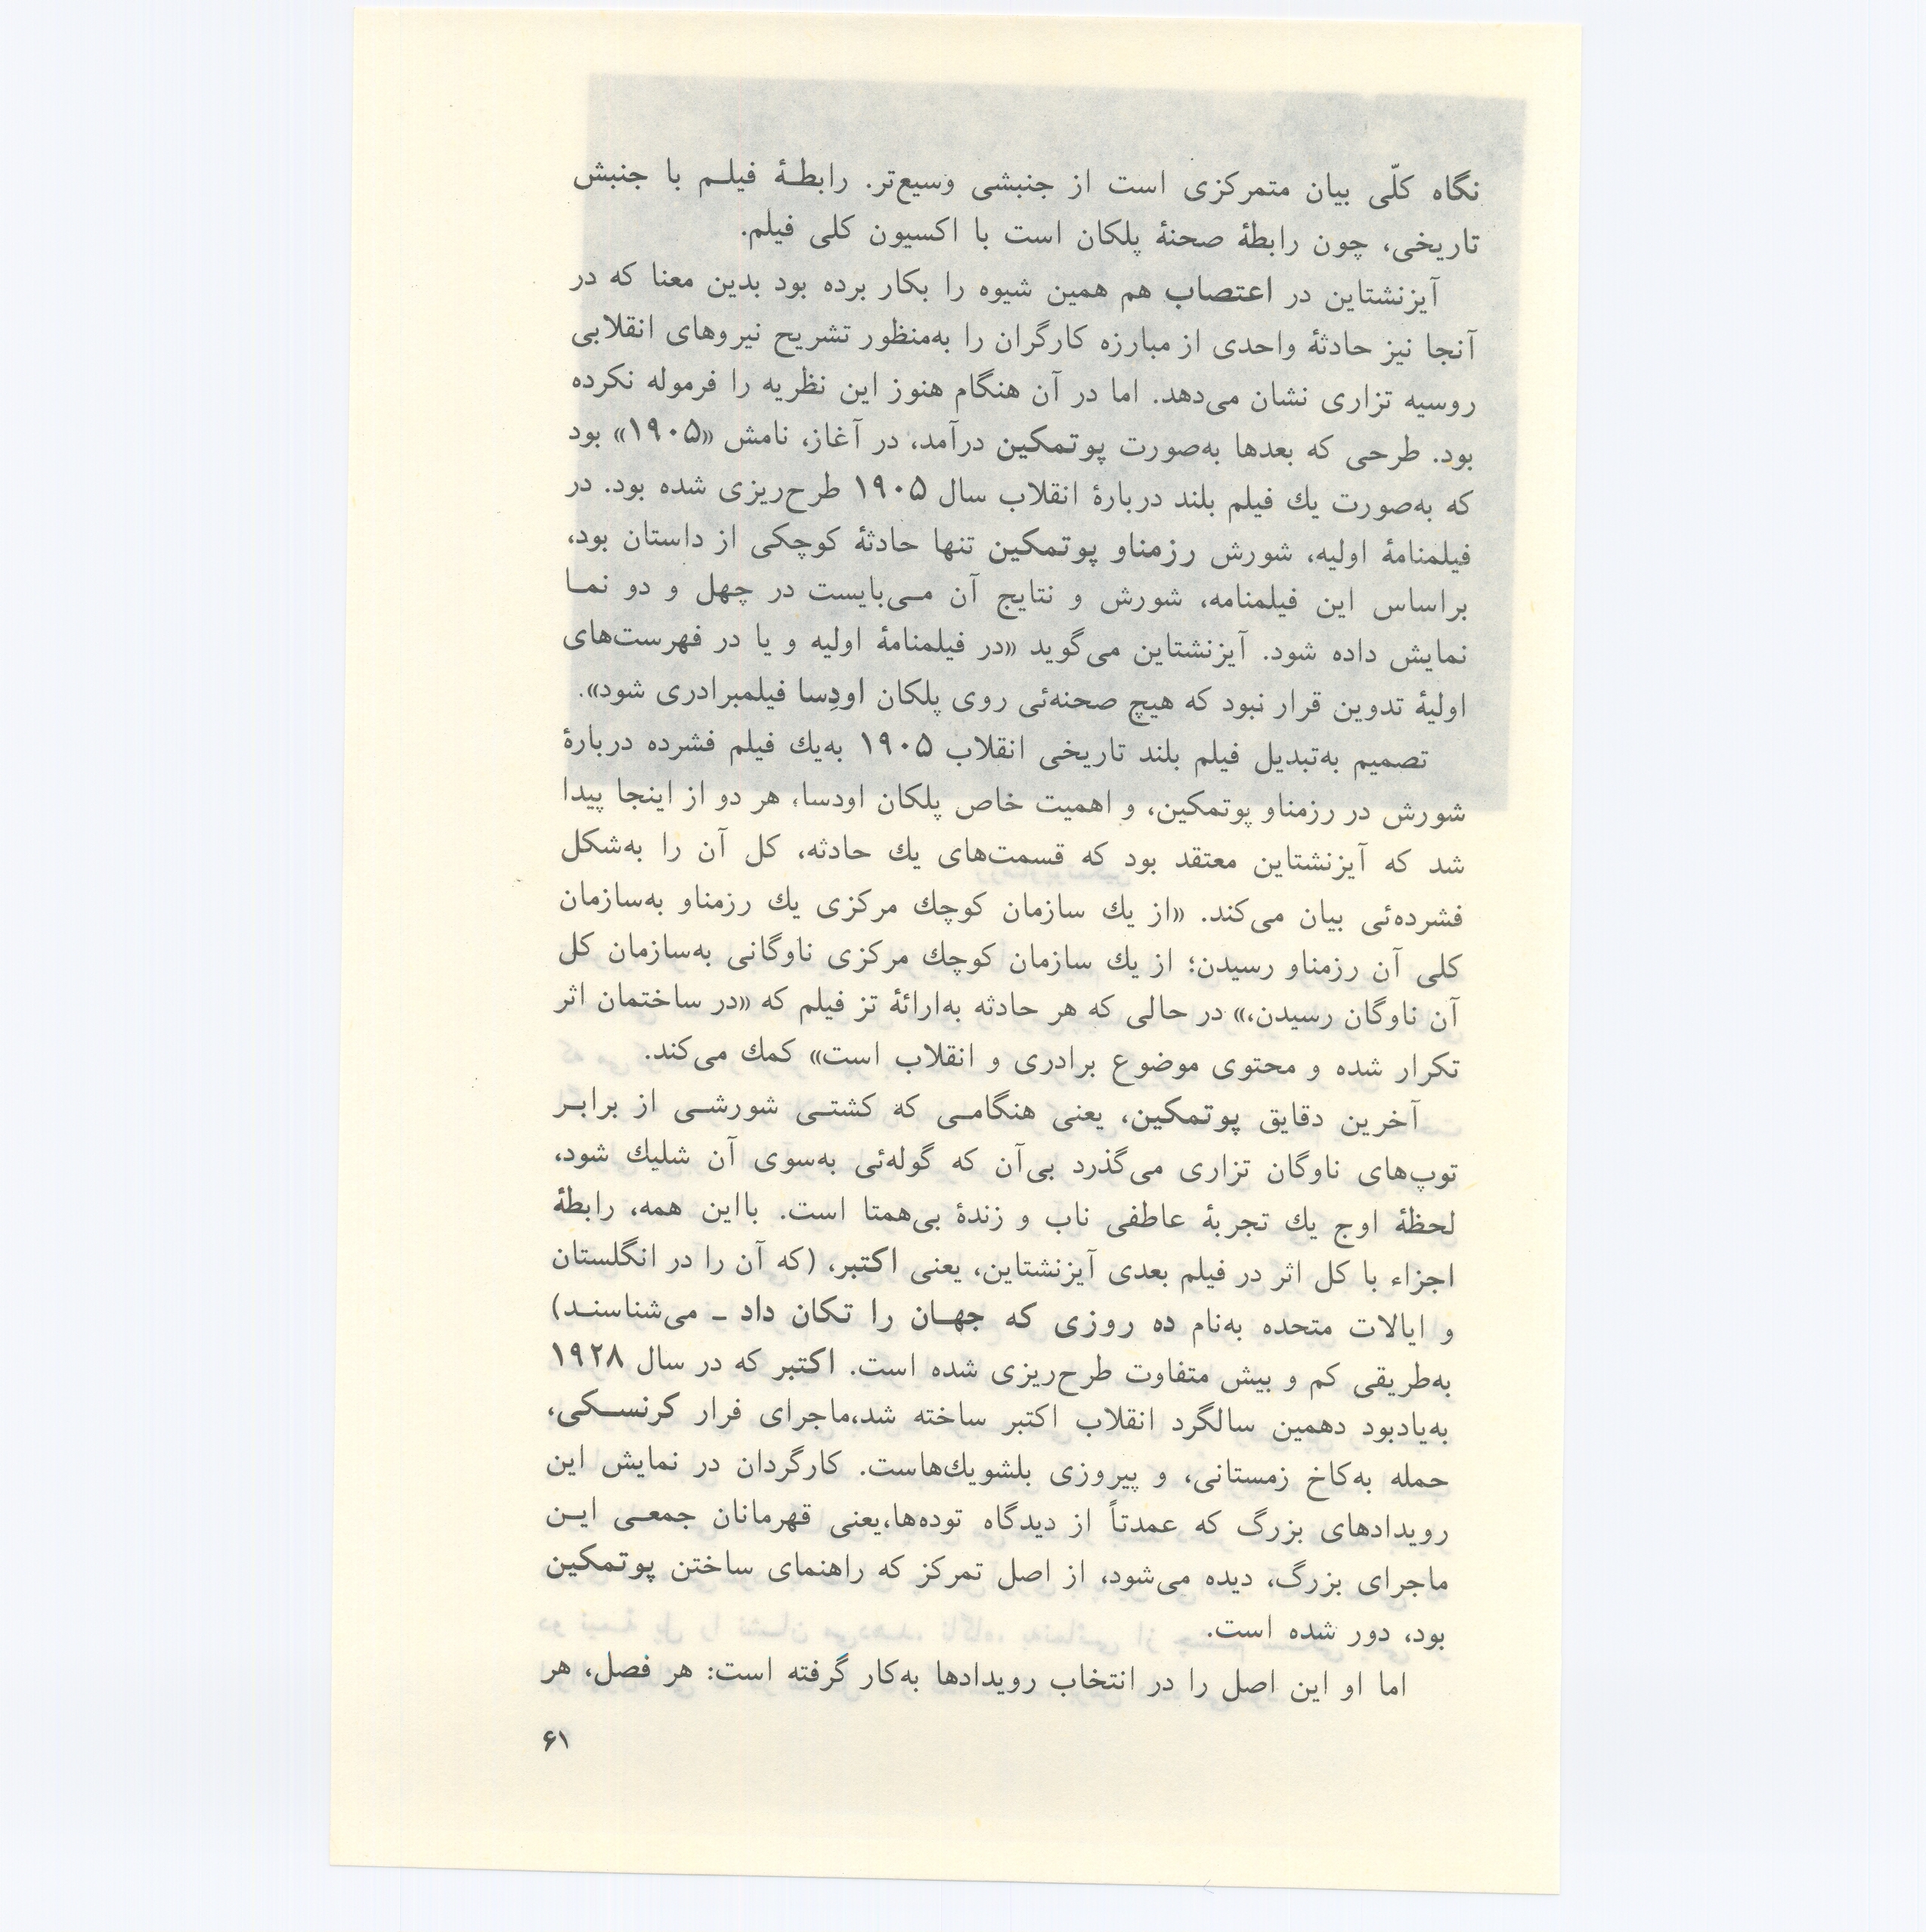 نگاه کلّی بیان متمرکزی است از جنبشی وسیع‌تر. رابطـۀ فیلـم با جنبش
تاریخی، چون رابطۀ صحنۀ پلکان است با اکسیون کلی فیلم.
آیزنشتاین در اعتصاب هم همین شیوه را بکار برده بود بدین معنا که در
آنجا نیز حادثۀ واحدی از مبارزه کارگران را به‌منظور تشریح نیروهای انقلابی
روسیه تزاری نشان می‌دهد. اما در آن هنگام هنوز این نظریه را فرموله نکرده
بود. طرحی که بعدها به‌صورت پوتمکین درآمد، در آغاز، نامش «۱۹۰۵» بود
که به‌صورت یك فیلم بلند دربارۀ انقلاب سال ۱۹۰۵ طرح‌ریزی شده بود. در
فیلمنامۀ اولیه، شورش رزمناو پوتمکین تنها حادثۀ کوچکی از داستان بود،
براساس این فیلمنامه، شورش و نتایج آن مـی‌بایست در چهل و دو نمـا
نمایش داده شود. آیزنشتاین می‌گوید «در فیلمنامۀ اولیه و یا در فهرست‌های
اولیۀ تدوین قرار نبود که هیچ صحنه‌ئی روی پلکان اودِسا فیلمبرادری شود».
تصمیم به‌تبدیل فیلم بلند تاریخی انقلاب ۱۹۰۵ به‌یك فیلم فشرده دربارۀ
شورش در رزمناو پوتمکین، و اهمیت خاص پلکان اودسا، هر دو از اینجا پیدا
شد که آیزنشتاین معتقد بود که قسمت‌های یك حادثه، کل آن را به‌شکل
فشرده‌ئی بیان می‌کند. «از یك سازمان کوچك مرکزی یك رزمناو به‌سازمان
کلی آن رزمناو رسیدن؛ از یك سازمان کوچك مرکزی ناوگانی به‌سازمان کل
آن ناوگان رسیدن،» در حالی که هر حادثه به‌ارائۀ تز فیلم که «در ساختمان اثر
تکرار شده و محتوی موضوع برادری و انقلاب است» کمك می‌کند.
آخرین دقایق پوتمکین، یعنی هنگامـی که کشتـی شورشـی از برابـر
توپ‌های ناوگان تزاری می‌گذرد بی‌آن که گوله‌ئی به‌سوی آن شلیك شود،
لحظۀ اوج یك تجربۀ عاطفی ناب و زندۀ بی‌همتا است. بااین همه، رابطۀ
اجزاء با کل اثر در فیلم بعدی آیزنشتاین، یعنی اکتبر، (که آن را در انگلستان
و ایالات متحده به‌نام ده روزی که جهـان را تکان داد ـ می‌شناسنـد)
به‌طریقی کم و بیش متفاوت طرح‌ریزی شده است. اکتبر که در سال ۱۹۲۸
به‌یادبود دهمین سالگرد انقلاب اکتبر ساخته شد،ماجرای فرار کرنسـکی،
حمله به‌کاخ زمستانی، و پیروزی بلشویك‌هاست. کارگردان در نمایش این
رویدادهای بزرگ که عمدتاً از دیدگاه توده‌ها،یعنی قهرمانان جمعـی ایـن
ماجرای بزرگ، دیده می‌شود، از اصل تمرکز که راهنمای ساختن پوتمکین
بود، دور شده است.
اما او این اصل را در انتخاب رویدادها به‌کار گرفته است: هر فصل، هر
۶۱